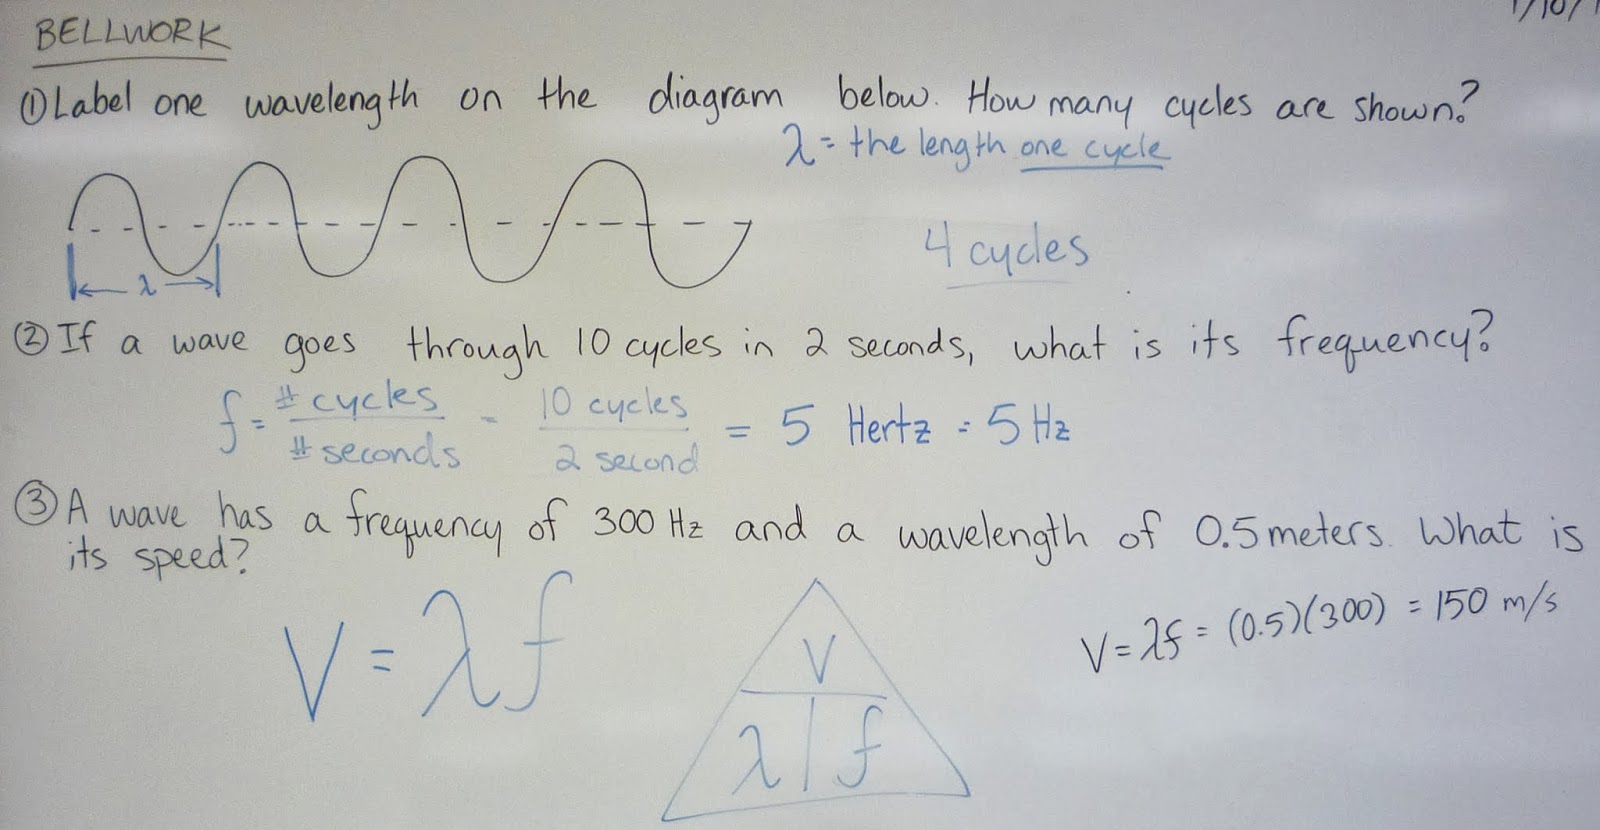 1/10/
BELLWORK
① Label one wavelength on the diagram below. How many cycles are shown?
λ = the length one cycle
4 cycles
λ
② If a wave goes through 10 cycles in 2 seconds, what is its frequency?
f = # cycles / # seconds = 10 cycles / 2 second = 5 Hertz = 5 Hz
③ A wave has a frequency of 300 Hz and a wavelength of 0.5 meters. What is
its speed?
V = λf
V
λ | f
V = λf = (0.5)(300) = 150 m/s